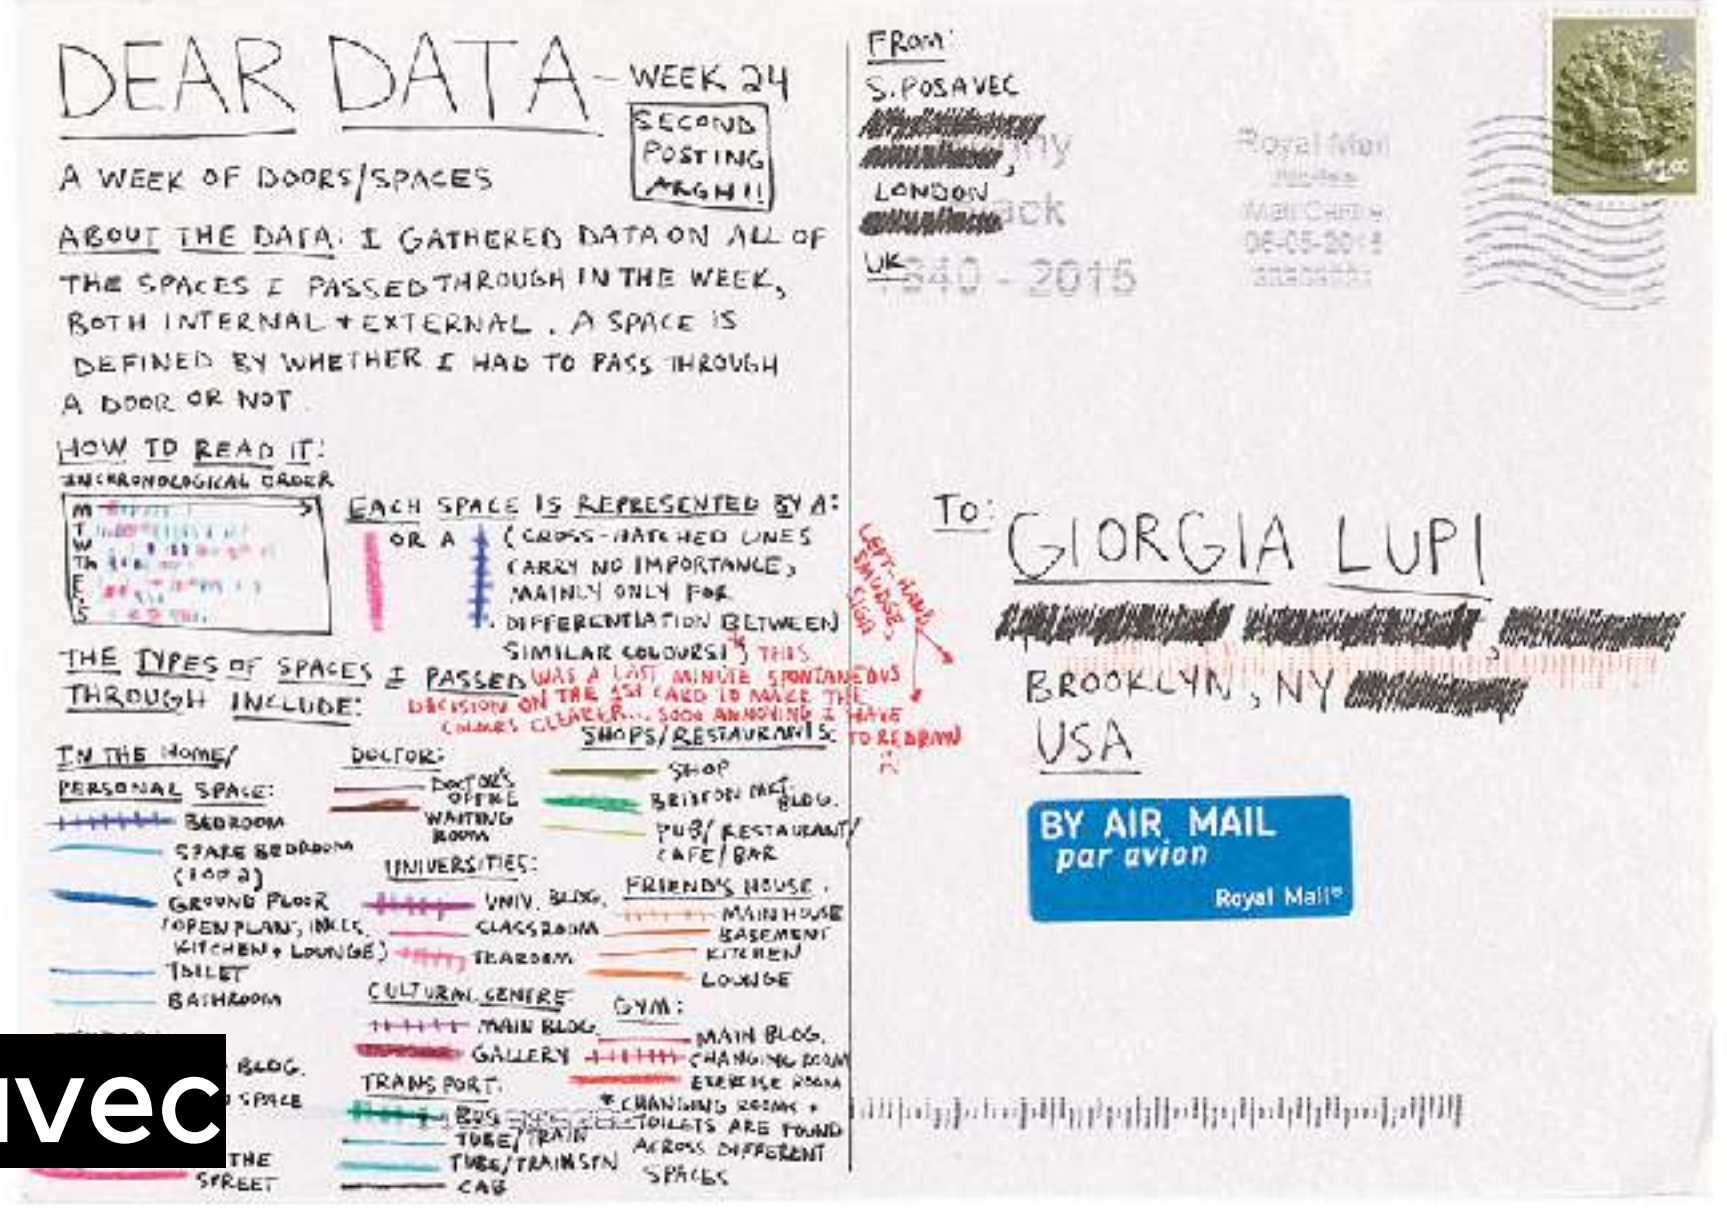 DEAR DATA - WEEK 24
SECOND
POSTING
ARGH!!
A WEEK OF DOORS/SPACES
ABOUT THE DATA: I GATHERED DATA ON ALL OF
THE SPACES I PASSED THROUGH IN THE WEEK,
BOTH INTERNAL + EXTERNAL. A SPACE IS
DEFINED BY WHETHER I HAD TO PASS THROUGH
A DOOR OR NOT.
HOW TO READ IT:
IN CHRONOLOGICAL ORDER
M
T
W
Th
F
S
S
EACH SPACE IS REPRESENTED BY A:
OR A
(CROSS-HATCHED LINES
CARRY NO IMPORTANCE,
MAINLY ONLY FOR
DIFFERENTIATION BETWEEN
SIMILAR COLOURS!)
* THIS
WAS A LAST MINUTE SPONTANEOUS
DECISION ON THE 1ST CARD TO MAKE THE
COLOURS CLEARER... SOOO ANNOYING I HAVE
TO REDRAW
LEFT-HAND
SMUDGE,
SIGH
THE TYPES OF SPACES I PASSED
THROUGH INCLUDE:
IN THE HOME/
PERSONAL SPACE:
BEDROOM
SPARE BEDROOM
(1 OF 2)
GROUND FLOOR
(OPEN PLAN, INCL.
KITCHEN + LOUNGE)
TOILET
BATHROOM
BLDG.
SPACE
THE
STREET
DOCTOR:
DOCTOR'S
OFFICE
WAITING
ROOM
UNIVERSITIES:
UNIV. BLDG.
CLASSROOM
TEAROOM
CULTURAL CENTRE
MAIN BLDG.
GALLERY
TRANSPORT:
BUS
TUBE/TRAIN
TUBE/TRAIN STN
CAB
SHOPS/RESTAURANTS:
SHOP
BRIXTON MKT.
BLDG.
PUB/RESTAURANT/
CAFE/BAR
FRIEND'S HOUSE.
MAIN HOUSE
BASEMENT
KITCHEN
LOUNGE
GYM:
MAIN BLDG.
CHANGING ROOM
EXERCISE ROOM
* CHANGING ROOMS +
TOILETS ARE FOUND
ACROSS DIFFERENT
SPACES
avec
FROM:
S. POSAVEC
LONDON
UK
1840 - 2015
Royal Mail
Mail Centre
06-05-2015
TO: GIORGIA LUPI
BROOKLYN, NY
USA
BY AIR MAIL
par avion
Royal Mail®